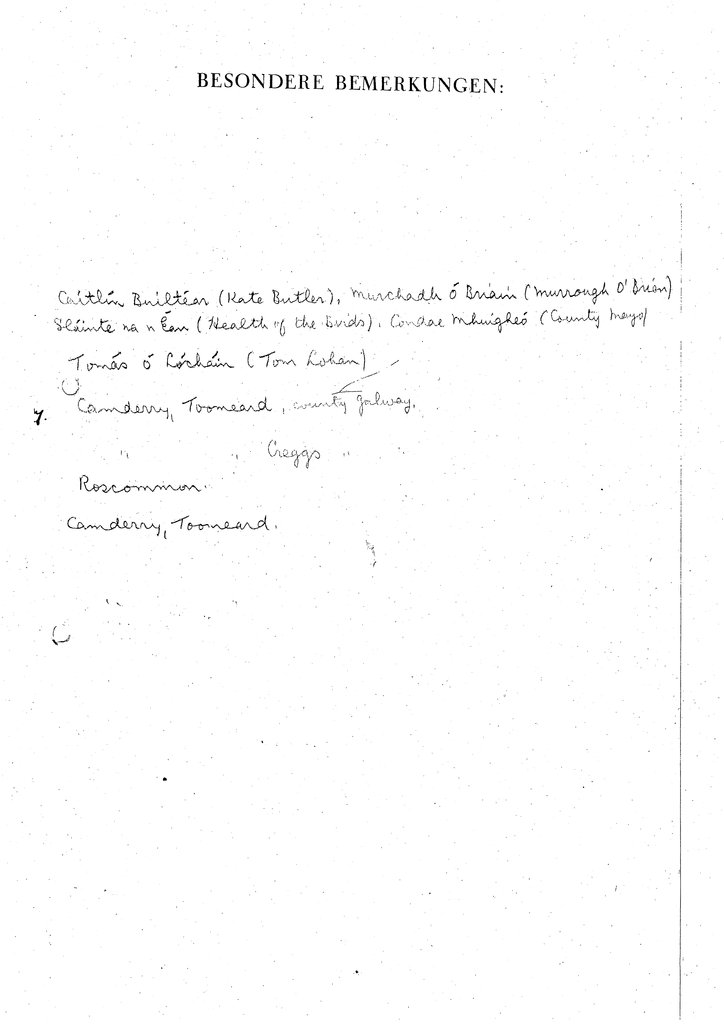 BESONDERE BEMERKUNGEN:
Caitlín Builtéar (Kate Butler), Murchadh ó Briain (Murrough O'Brien)
Sláinte na n Éan (Health of the Birds). Condae Mhuigheó (County Mayo)
Tomás ó Lócháin (Tom Lohan)
7. Camderry, Toomeard, county Galway.
" " Creggs "
Roscommon.
Camderry, Toomeard.